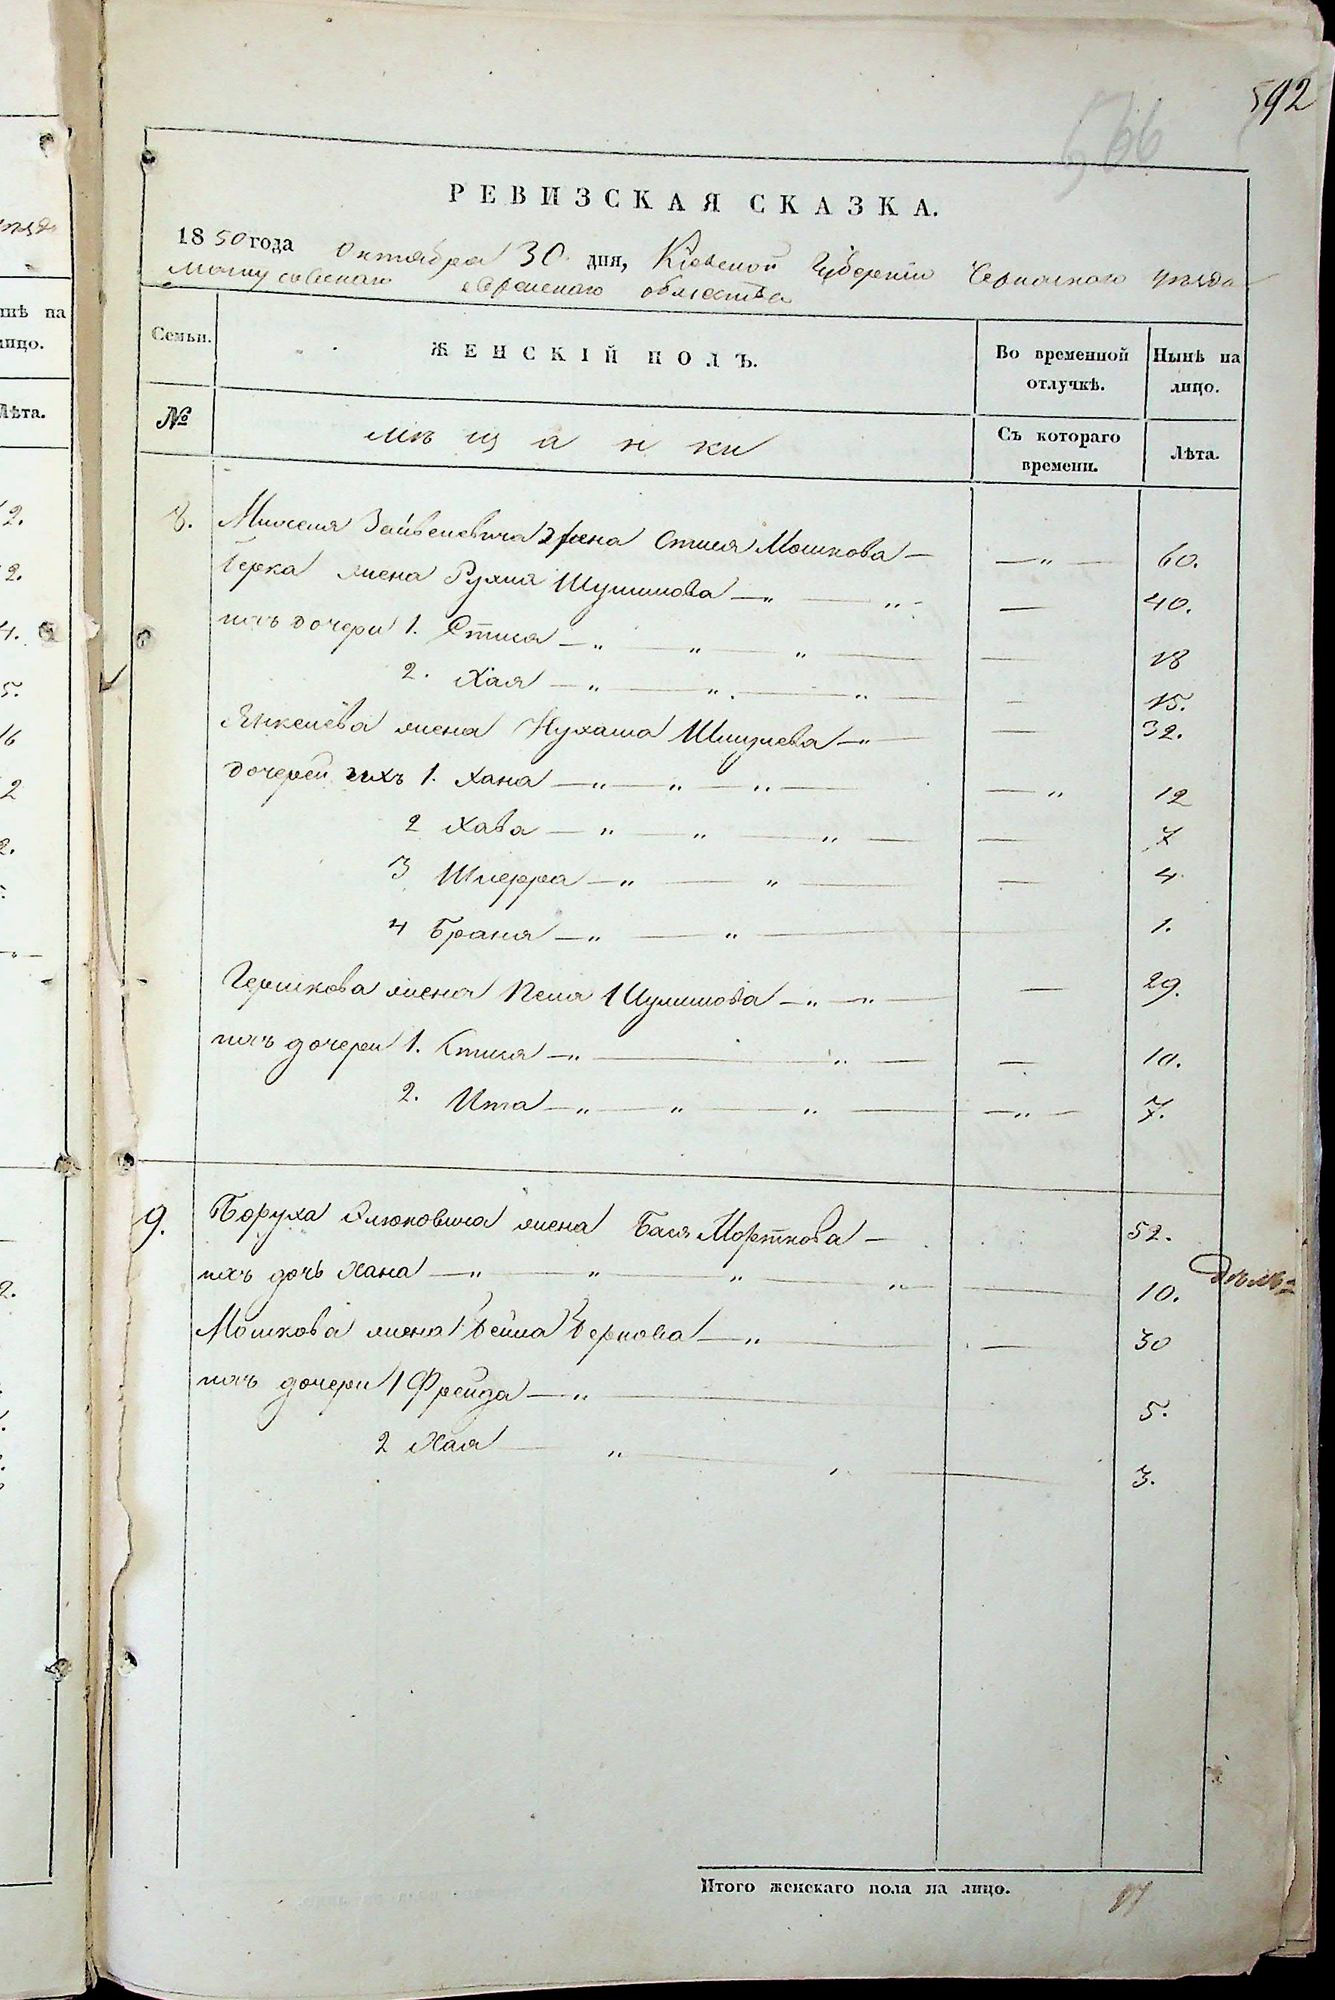 592
566
РЕВИЗСКАЯ СКАЗКА.
1850 года Октября 30 дня, Кіевской Губерніи Черкаского уезда
еврейского общества
Семьи.
ЖЕНСКІЙ ПОЛЪ.
Во временной отлучкѣ.
Нынѣ на лицо.
№
мѣщанки
Съ котораго времени.
Лѣта.
8. жена Стися Мошкова — „ — 60.
Берка жена Рухля Шулимова — „ — „ — 40.
ихъ дочери 1. Стися — „ — „ — „ — 18
2. Хая — „ — „ — „ — 15.
Янкелева жена Шмулева — „ — 32.
дочерей ихъ 1. Хана — „ — „ — „ — „ 12
2 Хава — „ — „ — „ — 7
3 Шифра — „ — „ — 4
4 Браня — „ — „ — 1.
Гершкова жена Песя Шулимова — „ — „ — 29.
ихъ дочери 1. Стися — „ — „ — 10.
2. Ита — „ — „ — „ — „ — 7.
9. Боруха жена Бася Морткова — 52.
ихъ дочь Хана — „ — „ — „ — „ — 10.
Мошкова жена Бейла Беркова — „ — 30
ихъ дочери 1 Фрейда — „ — 5.
2 Хая — „ — 3.
Итого женскаго пола на лицо. 17
нѣ на
лицо.
Лѣта.